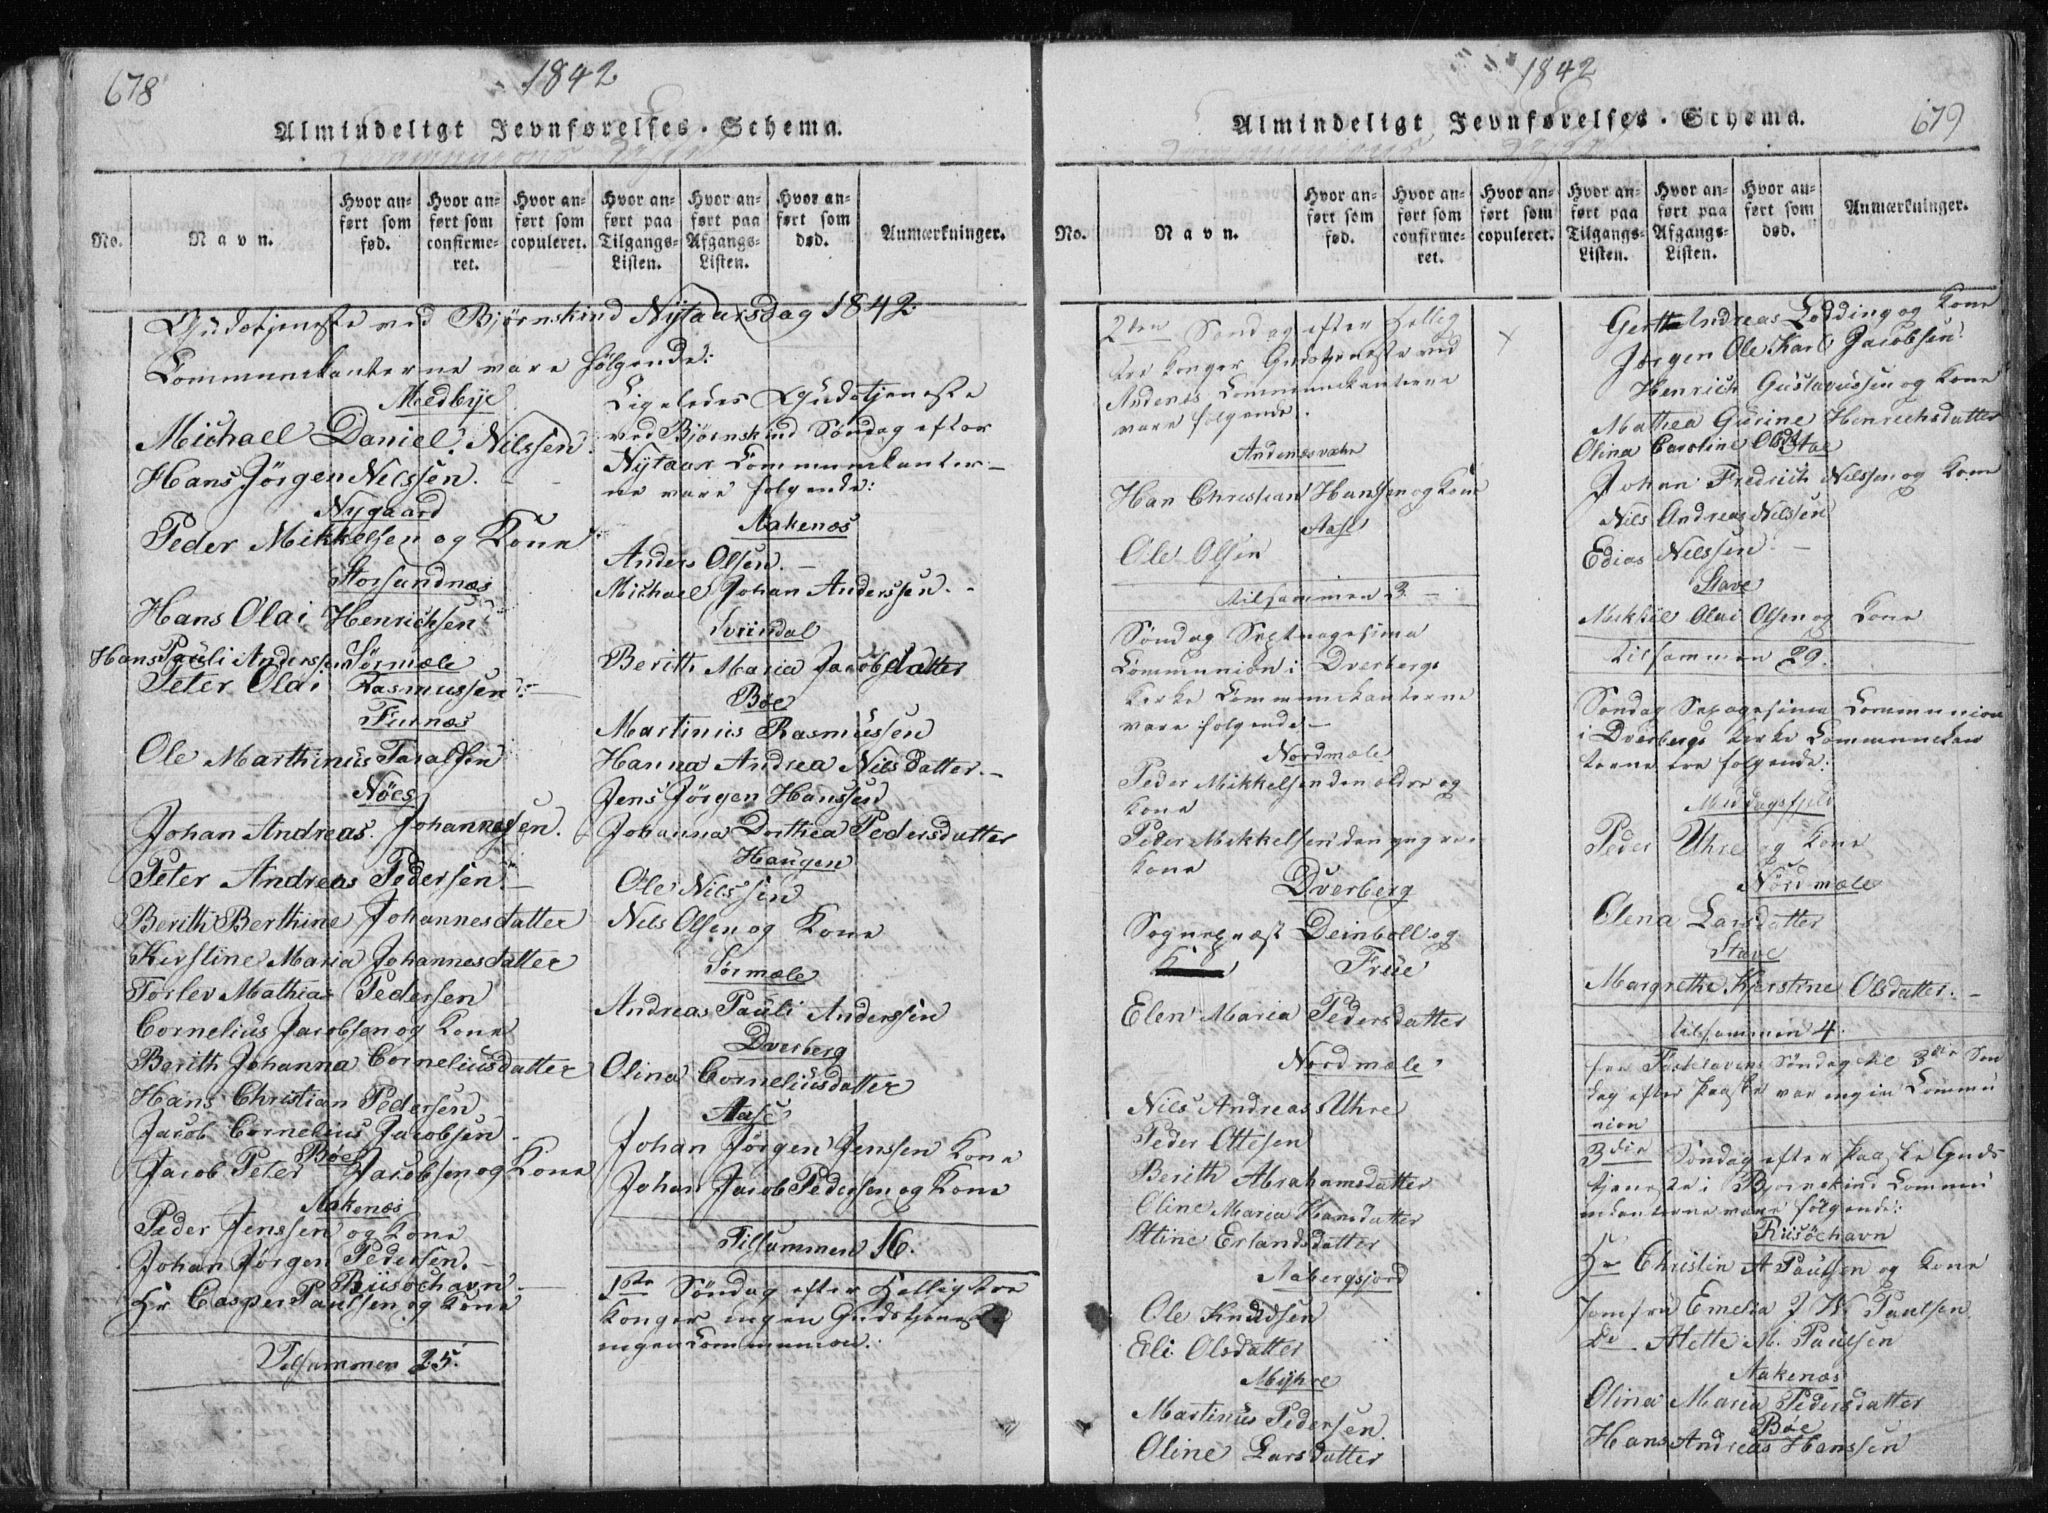 678
1842
Almindeligt Jevnførelses-Schema.
No.
Navn.
Hvor anført som fød.
Hvor anført som confirmeret.
Hvor anført som copuleret.
Hvor anført paa Tilgangs-Listen.
Hvor anført paa Afgangs-Listen.
Hvor anført som død.
Anmærkninger.
Gudstjeneste ved Bjørnskind Nytaarsdag 1842
Communikanterne vare følgende:
Medbye
Michael Daniel Nilssen
Hans Jörgen Nilssen.
Nygaard
Peder Mikkelsen og Kone
Storsandnæs
Hans Olai Henrichsen
Hans Pauli Anderssen Sörmæle
Peter Olai Rasmussen
Furnæs
Ole Marthinus Taralsen
Nöes
Johan Andreas Johannessen.
Peter Andreas Pedersen.
Berith Berthine Johannesdatter
Kirstine Maria Johannesdatter
Torlev Mathias Pedersen
Cornelius Jacobsen og Kone
Berith Johanna Corneliusdatter
Hans Christian Pedersen
Jacob Cornelius Jacobsen
Böe
Jacob Peter Jacobsen og Kone
Aakenæs
Peder Jenssen og Kone
Johan Jörgen Pedersen.
Riisöehavn
Hr Casper Paulsen og Kone
Tilsammen 25.
Ligeledes Gudstjeneste
ved Bjørnskind Söndag efter
Nytaar Communikanter-
ne vare følgende:
Aakenæs
Anders Olsen.
Michael Johan Anderssen.
Svindal
Berith Maria Jacobsdatter
Böe
Martinus Rasmussen
Hanna Andrea Nilsdatter.
Jens Jörgen Hanssen
Johanna Dorthea Pedersdatter
Haugen
Ole Nilssen
Nils Olsen og Kone
Sörmæle
Andreas Pauli Anderssen
Dverberg
Olina Corneliusdatter
Aase
Johan Jörgen Jenssen Kone
Johan Jacob Pedersen og Kone
Tilsammen 16.
1ste Söndag efter Hellig tre
Konger ingen Gudstjeneste
ingen Communion.
1842
679
Almindeligt Jevnførelses-Schema.
No.
Navn.
Hvor anført som fød.
Hvor anført som confirmeret.
Hvor anført som copuleret.
Hvor anført paa Tilgangs-Listen.
Hvor anført paa Afgangs-Listen.
Hvor anført som død.
Anmærkninger.
2den Söndag efter Hellig
tre Konger Gudstjeneste ved
Andenæs Communikanterne
vare følgende.
Andenæsvær
Han Christian Hanssen og Kone
Aase
Ole Olsen
tilsammen 3
Söndag Septuagesima
Communion i Dverbergs
Kirke Communikanterne
vare følgende
Nordmæle
Peder Mikkelsen den ældre og
Kone
Peder Mikkelsen den yngre
Kone
Dverberg
Sognepræst Deinboll og
Frue
Elen Maria Pedersdatter
Nordmæle
Nils Andreas Uhre
Peder Ottesen
Berith Abrahamsdatter
Oline Maria Hansdatter
Stine Erlandsdatter
Aabergsjord
Ole Knudsen
Eli Olsdatter
Myhre
Martinus Pedersen.
Oline Larsdatter
Gertt Andreas Lodding og Kone
Jörgen Ole Karl Jacobsen
Henrich Gustavussen og Kone
Mathea Gurine Henrichsdatter
Olina Caroline Olsdatter
Johan Fredrich Nilssen og Kone
Nils Andreas Nilssen
Edias Nilssen
Stave
Mikkel Olai Olsen og Kone
tilsammen 29.
Communion
i Dverbergs Kirke Communikan
terne ere følgende:
Middagsfjeld
Peder Uhre og Kone
Nordmæle
Elena Larsdatter
Stave
Margrethe Kjerstine Olsdatter.
tilsammen 4.
fra Fastelavens Söndag til 3die Sön
dag efter Paaske var ingen Commu
nion
3die Söndag efter Paaske Guds
tjeneste i Bjørnskind Commu
nikanterne vare følgende:
Riisöehavn
Hr Christin A Paulsen og Kone
Jomfru Emelia J W Paulsen
do Alette M. Paulsen
Aakenæs
Olina Maria Pedersdatter
Böe
Hans Andreas Hanssen